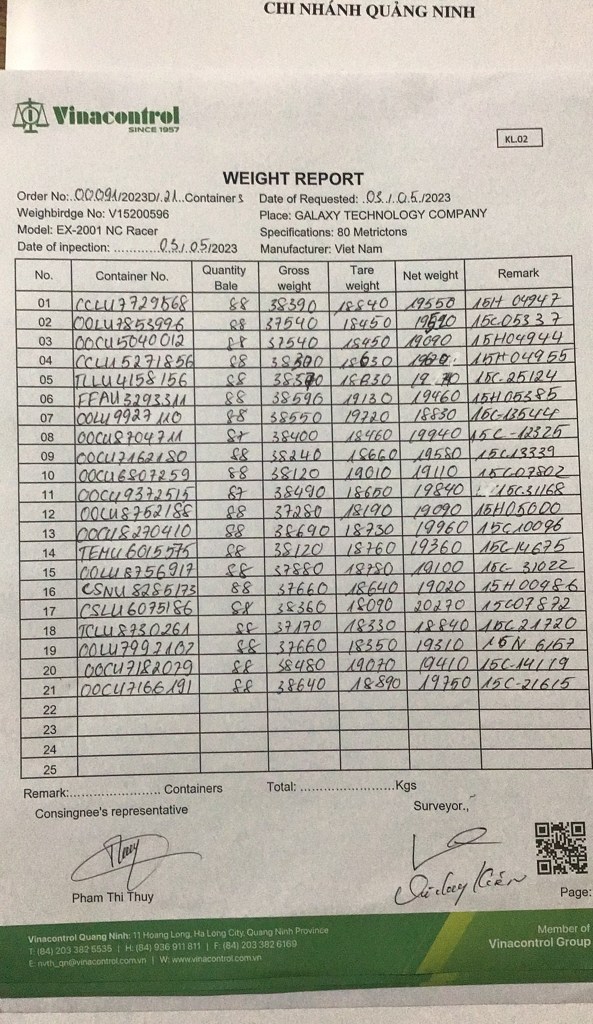 CHI NHÁNH QUẢNG NINH
Vinacontrol
SINCE 1957
KL.02
WEIGHT REPORT
Order No:..00091/2023D/.21..Containers Date of Requested: .03./.05./2023
Weighbirdge No: V15200596 Place: GALAXY TECHNOLOGY COMPANY
Model: EX-2001 NC Racer Specifications: 80 Metrictons
Date of inpection: ............03./.05/2023 Manufacturer: Viet Nam
No. Container No. Quantity Bale Gross weight Tare weight Net weight Remark
01 CCLU7729568 88 38390 18840 19550 15H 04947
02 OOLU7853996 88 37540 18450 15C05337
03 OOCU5040012 88 37540 18450 19090 15H04944
04 CCLU5271856 88 38300 18630 15H04955
05 TLLU4158156 88 18830 15C-25124
06 FFAU3293311 88 38590 19130 19460 15H05385
07 OOLU9927110 88 38550 19720 18830 15C-13544
08 OOCU8704711 87 38400 18460 19940 15C-12325
09 OOCU7162180 88 38240 18660 19580 15C13339
10 OOCU6807259 88 38120 19010 19110 15C07802
11 OOCU9372515 87 38490 18650 19840 15C31168
12 OOCU8752188 88 37280 18190 19090 15H05000
13 OOCU8270410 88 38690 18730 19960 15C10096
14 TEMU6015575 88 38120 18760 19360 15C-14675
15 OOLU8756917 88 37880 18780 19100 15C-31022
16 CSNU8285173 88 37660 18640 19020 15H00986
17 CSLU6075186 88 38360 18090 20270 15C07872
18 TCLU8730261 88 37170 18330 18840 15C21720
19 OOLU7992102 88 37660 18350 19310 15N 6157
20 OOCU7182079 88 38480 19070 19410 15C-14119
21 OOCU7166191 88 38640 18890 19750 15C-21615
22
23
24
25
Remark:...................... Containers Total: .......................Kgs
Consingnee's representative Surveyor.,
Pham Thi Thuy
Page:
Vinacontrol Quang Ninh: 11 Hoang Long, Ha Long City, Quang Ninh Province
T: (84) 203 382 5535 | H: (84) 936 911 811 | F: (84) 203 382 6169
E: nvth_qn@vinacontrol.com.vn | W: www.vinacontrol.com.vn
Member of
Vinacontrol Group